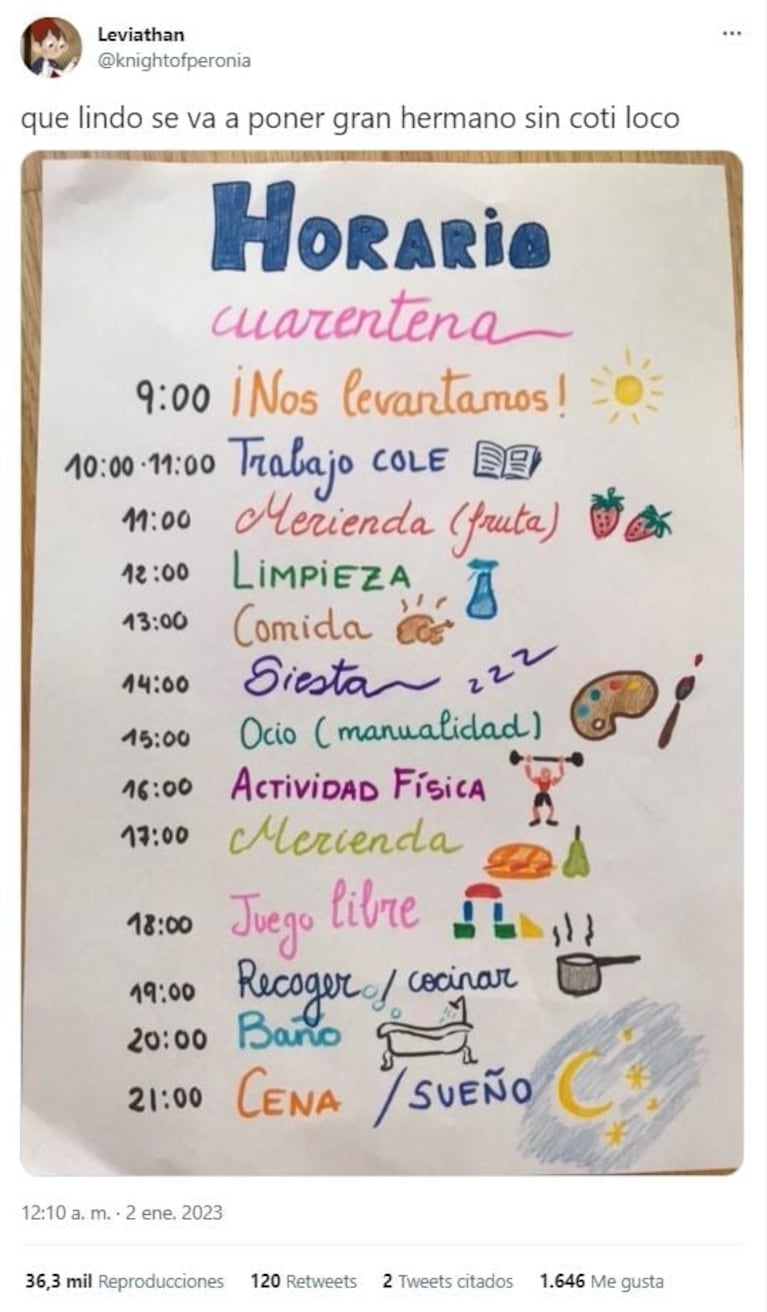 Leviathan
@knightofperonia
que lindo se va a poner gran hermano sin coti loco
HORARiO
cuarentena
9:00 ¡Nos levantamos!
10:00-11:00 Trabajo COLE
11:00 Merienda (fruta)
12:00 LiMPiEZA
13:00 Comida
14:00 Siesta zzz
15:00 Ocio (manualidad)
16:00 ACTiViDAD FíSiCA
17:00 Merienda
18:00 Juego libre
19:00 Recoger / cocinar
20:00 Baño
21:00 CENA / SUEÑO
12:10 a. m. · 2 ene. 2023
36,3 mil Reproducciones 120 Retweets 2 Tweets citados 1.646 Me gusta